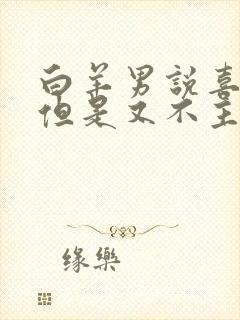 白羊男說喜
但是又不主
缘樂